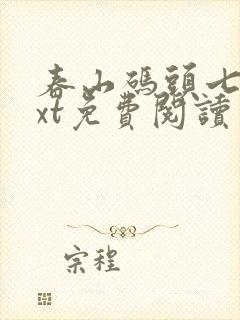 春山碼頭七
xt免費閱讀
宗程